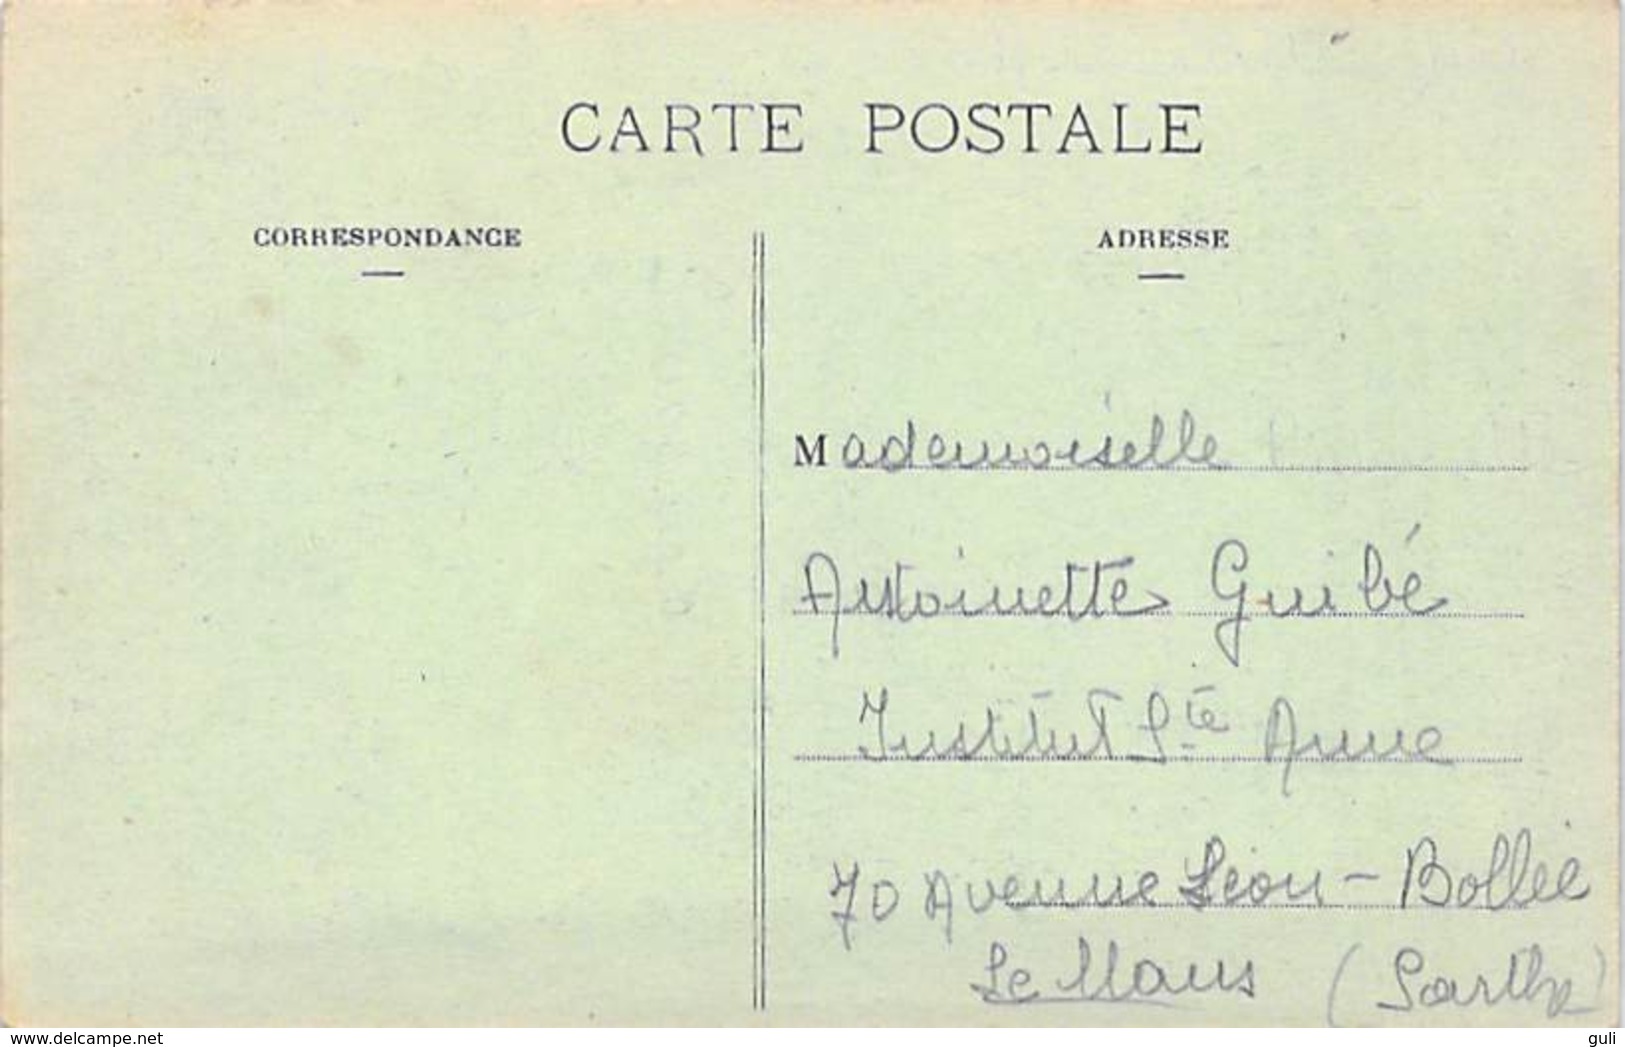 CARTE POSTALE
CORRESPONDANCE
ADRESSE
Mademoiselle
Antoinette Guibé
Institut Ste Anne
70 Avenue Léon-Bollée
Le Mans (Sarthe)
www.delcampe.net
guli